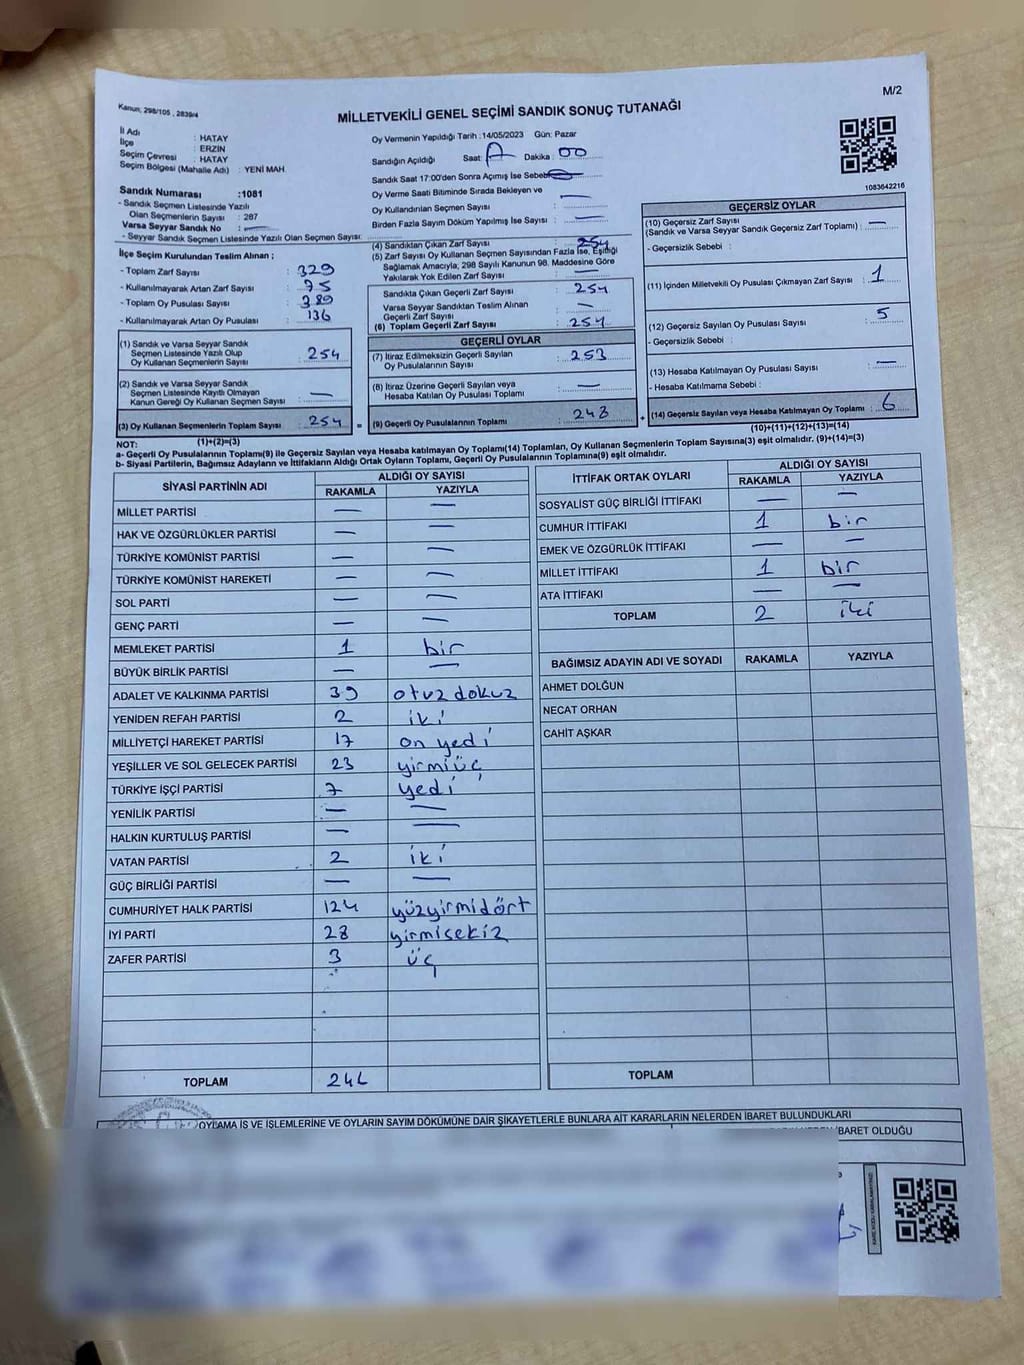 M/2
Kanun: 298/105 , 2839/4
MİLLETVEKİLİ GENEL SEÇİMİ SANDIK SONUÇ TUTANAĞI
İl Adı : HATAY
İlçe : ERZİN
Seçim Çevresi : HATAY
Seçim Bölgesi (Mahalle Adı) : YENİ MAH
Sandık Numarası :1081
- Sandık Seçmen Listesinde Yazılı
Olan Seçmenlerin Sayısı : 287
Varsa Seyyar Sandık No :
- Seyyar Sandık Seçmen Listesinde Yazılı Olan Seçmen Sayısı:
Oy Vermenin Yapıldığı Tarih :14/05/2023 Gün: Pazar
Sandığın Açıldığı Saat : Dakika : 00
Sandık Saat 17:00'den Sonra Açımış İse Sebebi
Oy Verme Saati Bitiminde Sırada Bekleyen ve
Oy Kullandırılan Seçmen Sayısı : —
Birden Fazla Sayım Döküm Yapılmış İse Sayısı : —
1083642216
İlçe Seçim Kurulundan Teslim Alınan ;
- Toplam Zarf Sayısı : 329
- Kullanılmayarak Artan Zarf Sayısı : 75
- Toplam Oy Pusulası Sayısı : 389
- Kullanılmayarak Artan Oy Pusulası : 136
(1) Sandık ve Varsa Seyyar Sandık
Seçmen Listesinde Yazılı Olup
Oy Kullanan Seçmenlerin Sayısı : 254
(2) Sandık ve Varsa Seyyar Sandık
Seçmen Listesinde Kayıtlı Olmayan
Kanun Gereği Oy Kullanan Seçmen Sayısı : —
(3) Oy Kullanan Seçmenlerin Toplam Sayısı : 254
(4) Sandıktan Çıkan Zarf Sayısı : 254
(5) Zarf Sayısı Oy Kullanan Seçmen Sayısından Fazla İse, Eşitliği
Sağlamak Amacıyla, 298 Sayılı Kanunun 98. Maddesine Göre
Yakılarak Yok Edilen Zarf Sayısı : —
Sandıkta Çıkan Geçerli Zarf Sayısı : 254
Varsa Seyyar Sandıktan Teslim Alınan
Geçerli Zarf Sayısı : —
(6) Toplam Geçerli Zarf Sayısı : 254
GEÇERLİ OYLAR
(7) İtiraz Edilmeksizin Geçerli Sayılan
Oy Pusulalarının Sayısı : 253
(8) İtiraz Üzerine Geçerli Sayılan veya
Hesaba Katılan Oy Pusulası Toplamı : —
= (9) Geçerli Oy Pusulalarının Toplamı : 248
GEÇERSİZ OYLAR
(10) Geçersiz Zarf Sayısı
(Sandık ve Varsa Seyyar Sandık Geçersiz Zarf Toplamı) : —
- Geçersizlik Sebebi :
(11) İçinden Milletvekili Oy Pusulası Çıkmayan Zarf Sayısı : 1
(12) Geçersiz Sayılan Oy Pusulası Sayısı : 5
- Geçersizlik Sebebi :
(13) Hesaba Katılmayan Oy Pusulası Sayısı : —
- Hesaba Katılmama Sebebi :
+ (14) Geçersiz Sayılan veya Hesaba Katılmayan Oy Toplamı : 6
(10)+(11)+(12)+(13)=(14)
NOT: (1)+(2)=(3)
a- Geçerli Oy Pusulalarının Toplamı(9) ile Geçersiz Sayılan veya Hesaba katılmayan Oy Toplamı(14) Toplamları, Oy Kullanan Seçmenlerin Toplam Sayısına(3) eşit olmalıdır. (9)+(14)=(3)
b- Siyasi Partilerin, Bağımsız Adayların ve İttifakların Aldığı Ortak Oyların Toplamı, Geçerli Oy Pusulalarının Toplamına(9) eşit olmalıdır.
SİYASİ PARTİNİN ADI ALDIĞI OY SAYISI
RAKAMLA YAZIYLA
MİLLET PARTİSİ — —
HAK VE ÖZGÜRLÜKLER PARTİSİ — —
TÜRKİYE KOMÜNİST PARTİSİ — —
TÜRKİYE KOMÜNİST HAREKETİ — —
SOL PARTİ — —
GENÇ PARTİ — —
MEMLEKET PARTİSİ 1 bir
BÜYÜK BİRLİK PARTİSİ — —
ADALET VE KALKINMA PARTİSİ 39 otuz dokuz
YENİDEN REFAH PARTİSİ 2 iki
MİLLİYETÇİ HAREKET PARTİSİ 17 on yedi
YEŞİLLER VE SOL GELECEK PARTİSİ 23 yirmiüç
TÜRKİYE İŞÇİ PARTİSİ 7 yedi
YENİLİK PARTİSİ — —
HALKIN KURTULUŞ PARTİSİ — —
VATAN PARTİSİ 2 iki
GÜÇ BİRLİĞİ PARTİSİ — —
CUMHURİYET HALK PARTİSİ 124 yüzyirmidört
İYİ PARTİ 28 yirmisekiz
ZAFER PARTİSİ 3 üç
TOPLAM
İTTİFAK ORTAK OYLARI ALDIĞI OY SAYISI
RAKAMLA YAZIYLA
SOSYALİST GÜÇ BİRLİĞİ İTTİFAKI — —
CUMHUR İTTİFAKI 1 bir
EMEK VE ÖZGÜRLÜK İTTİFAKI — —
MİLLET İTTİFAKI 1 bir
ATA İTTİFAKI — —
TOPLAM 2 iki
BAĞIMSIZ ADAYIN ADI VE SOYADI RAKAMLA YAZIYLA
AHMET DOLĞUN
NECAT ORHAN
CAHİT AŞKAR
TOPLAM
OYLAMA İŞ VE İŞLEMLERİNE VE OYLARIN SAYIM DÖKÜMÜNE DAİR ŞİKAYETLERLE BUNLARA AİT KARARLARIN NELERDEN İBARET BULUNDUKLARI
İBARET OLDUĞU